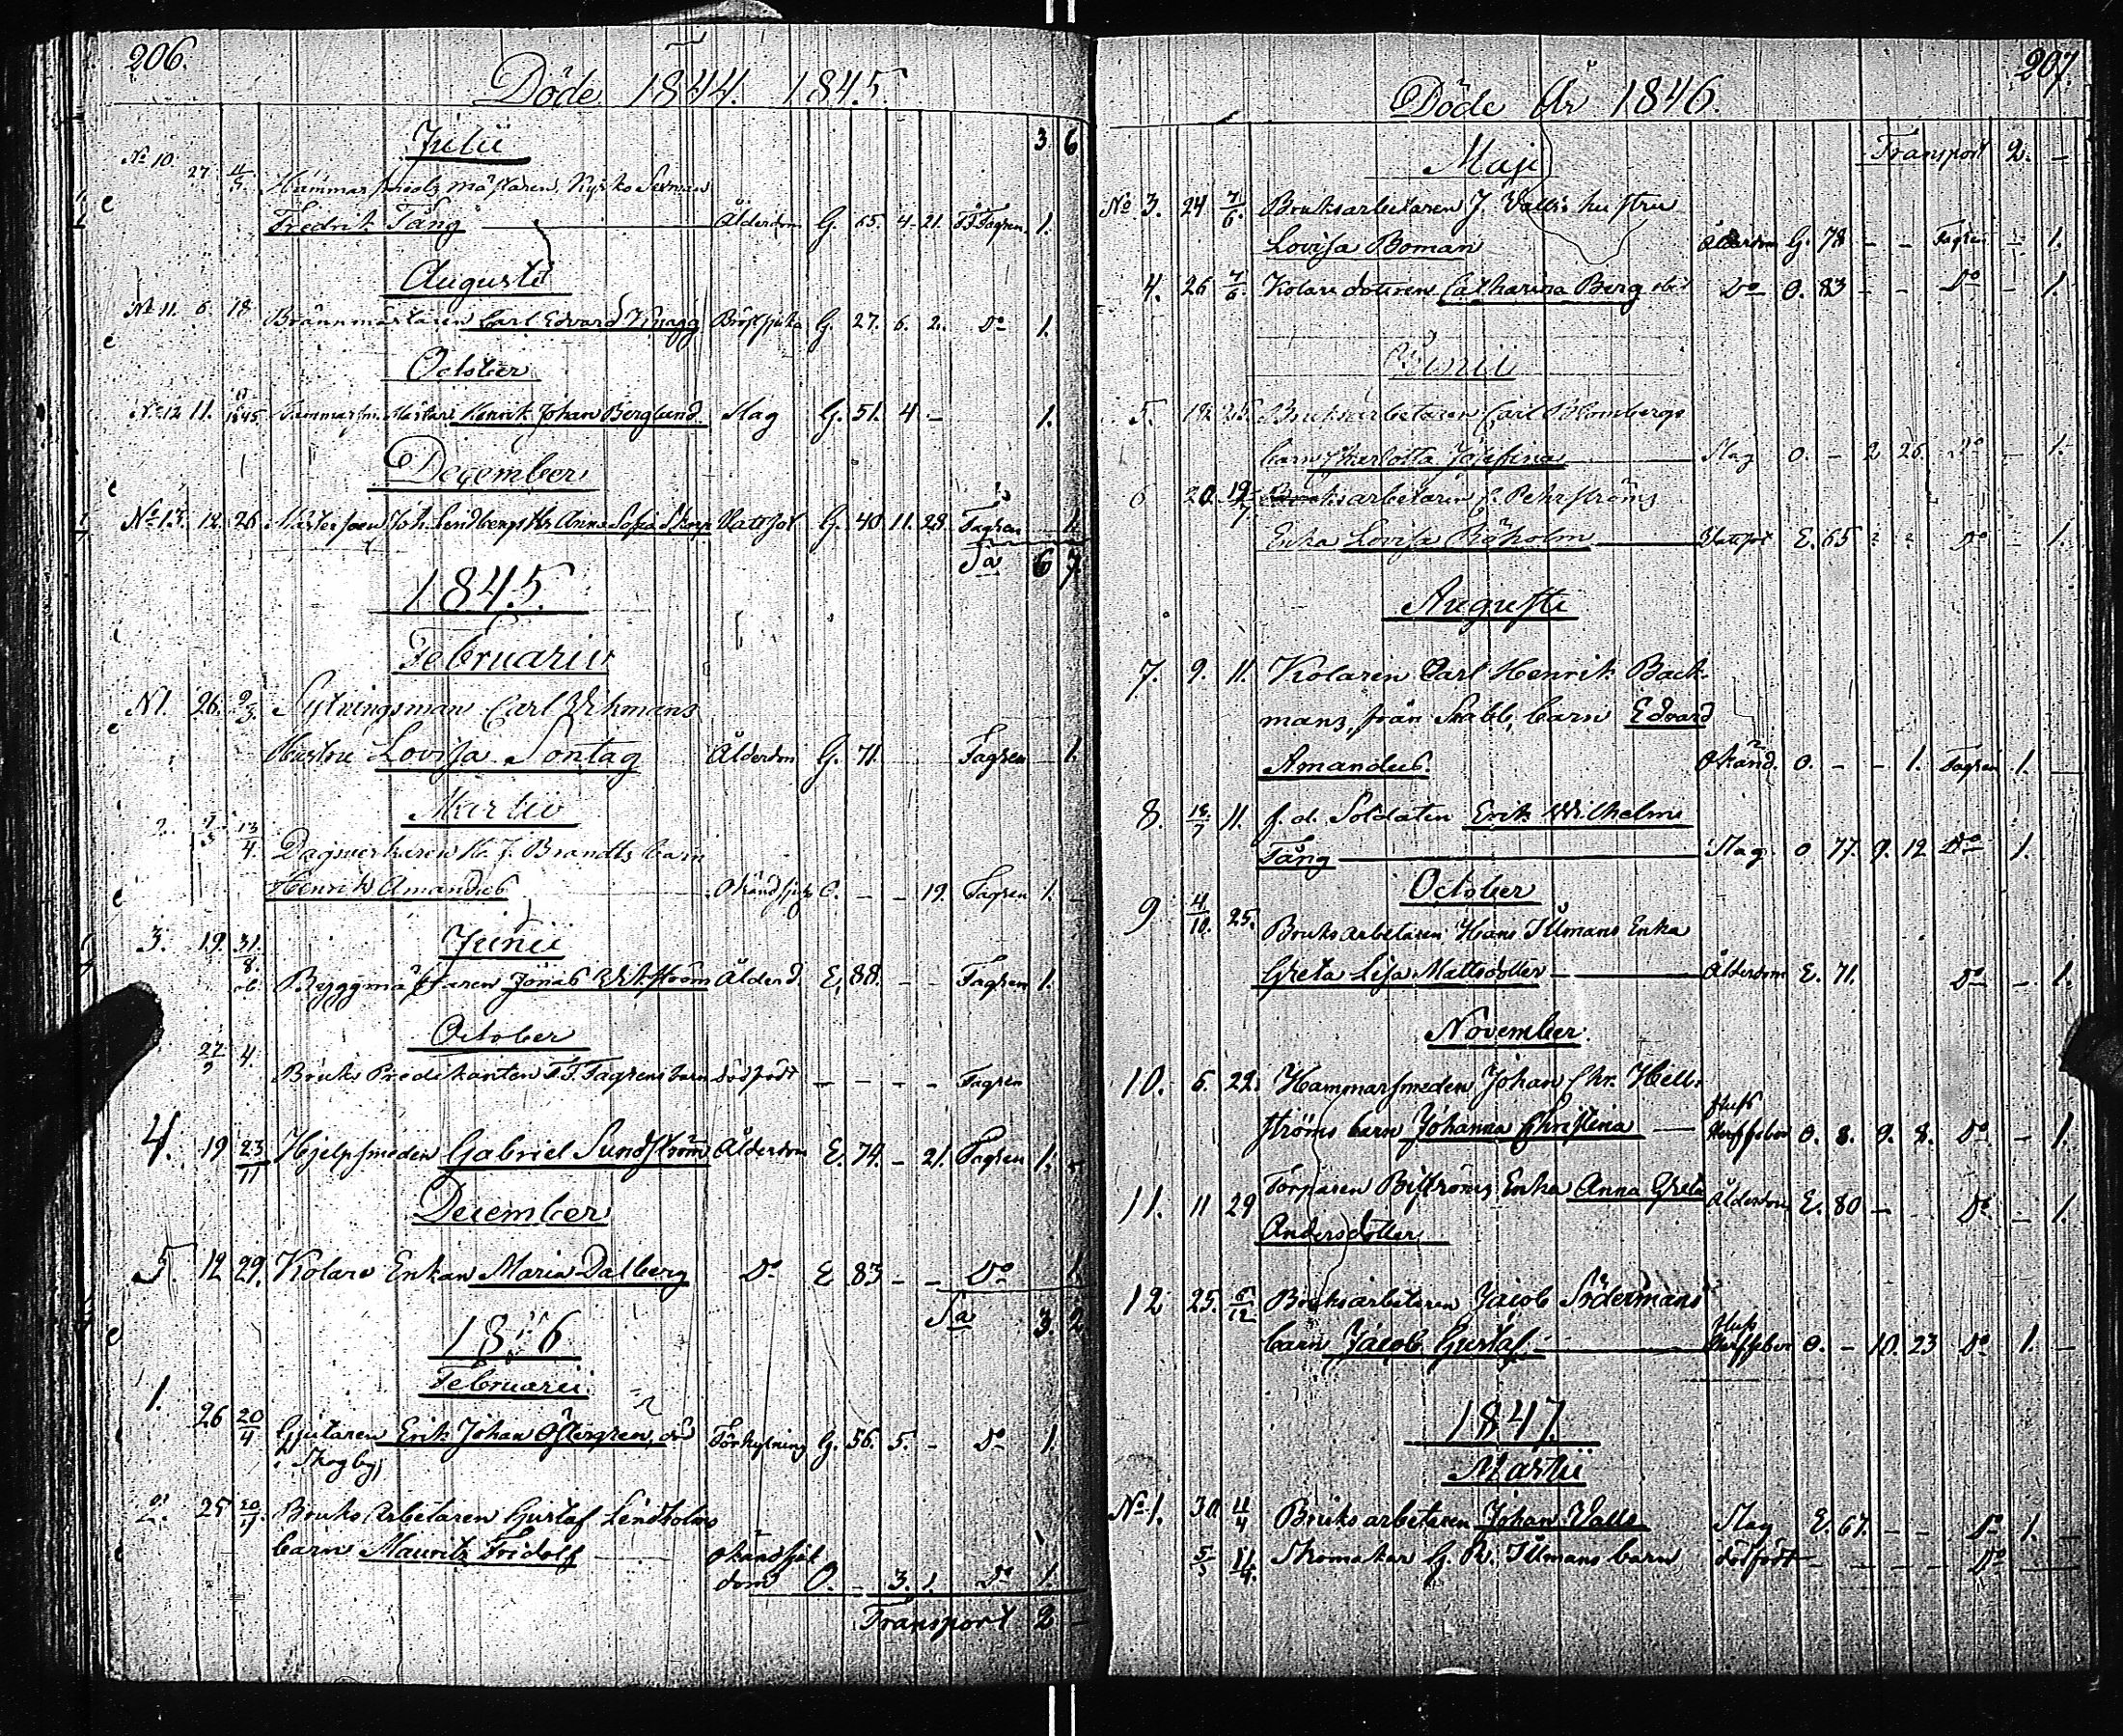 206.
Döde 1844. 1845.
Julii 3. 6
No 10 27 4/5 Hammarsmeds mästaren, Kyrko
Fredrik Tång Ålderdom G. 65. 4 - 21. F.F. Fagren. 1.
Augusti
No 11. 6. 18 Brännmästaren Carl Edvard Bröstsjuka G. 27. 6. 2. Do 1.
October
No 12 11. 1845. Hammarsm. Mästare Henrik Johan Berglund Slag G. 51. 4 - 1.
December
No 13. 12. 26 Joh. Lindbergs Anna Sofia G. 40. 11. 28. Fagren 1.
Sa 6 7
1845.
Februarii
N 1. 26. 2/3. Sytningsman Carl Ekmans
Hustru Lovisa Sontag Ålderdm G. 71. Fagren 1.
Martii
2. 13/4. Dagsverkaren H. J. Brandts barn
Henrik Amandus Okänd sjukd O. - - 19. Fagren 1. -
3. 19. 31/8. Junii
Byggmästaren Jonas Wikström Ålderd. E. 88. - - Fagren 1.
October
27/9 4. Bruks Predikanten F. F. Fagrens barn dödfödt - - - - Fagren
4. 19 23/11 Hjelpsmeden Gabriel Sundström Ålderdom E. 74. - 21. Fagren 1. -
December
5. 12 29. Kolare Enkan Maria Dalberg Do E 83 - - Do 1.
Sa 3. 2
1846
Februarii
1. 26 20/4 Gjutaren Erik Johan Östergren, Förkylning G. 56. 5. - Do 1.
i Skogby,
2. 25 20/7. Bruks Arbetaren Gustaf Lindholms
barn Mauritz Fridolf Okänd sjuk
dom O. - 3. 1. Do 1.
Transport 2 -
207.
Döde År 1846.
Maji Transport 2. -
No 3. 24 7/6. Bruksarbetaren J. Valls hustru
Lovisa Boman Ålderdom G. 78 - - Fagren - 1.
4. 26 7/6 Kolare dottren Catharina Berg Do O. 83 - - Do - 1.
Junii
5. 12 25. Bruksarbetaren Carl Blombergs
barn Charlotta Josefina Slag O. - 2 26. Do - 1.
6 20. 19/7 Bruksarbetaren f. Pehrströms
Enka Lovisa E. 65 ? ? Do - 1.
Augusti
7. 9. 11. Kolaren Carl Henrik Back-
mans, från Skabb, barn Edvard
Amandus Okänd. O. - - 1. Fagren 1. -
8. 18/7 11. f. d. Soldaten Erik Wilhelm
Tång Slag O 77. 9. 12 Do 1.
October
9 4/10. 25. Bruksarbetaren Hans Illmans Enka
Greta Lisa Mattsdotter Ålderdom E. 71. Do - 1.
November.
10. 6. 22. Hammarsmeden Johan Chr. Hell-
ströms barn Johanna Christina O. 8. 9. 8. Do - 1.
11. 11 29 Torparen Biströms Enka Anna Greta Ålderdom E. 80 - Do - 1.
Andersdotter
12 25. 6/12 Bruksarbetaren Jacob Södermans
barn Jacob Gustaf O. - 10. 23 Do 1. -
1847.
Martii
No 1. 30. 4/4 Bruksarbetaren Johan Valls Slag E. 67. - - Do 1. -
5/3 11/4. Skomakar G. R. Illmans barn dödfödt - - - - Do